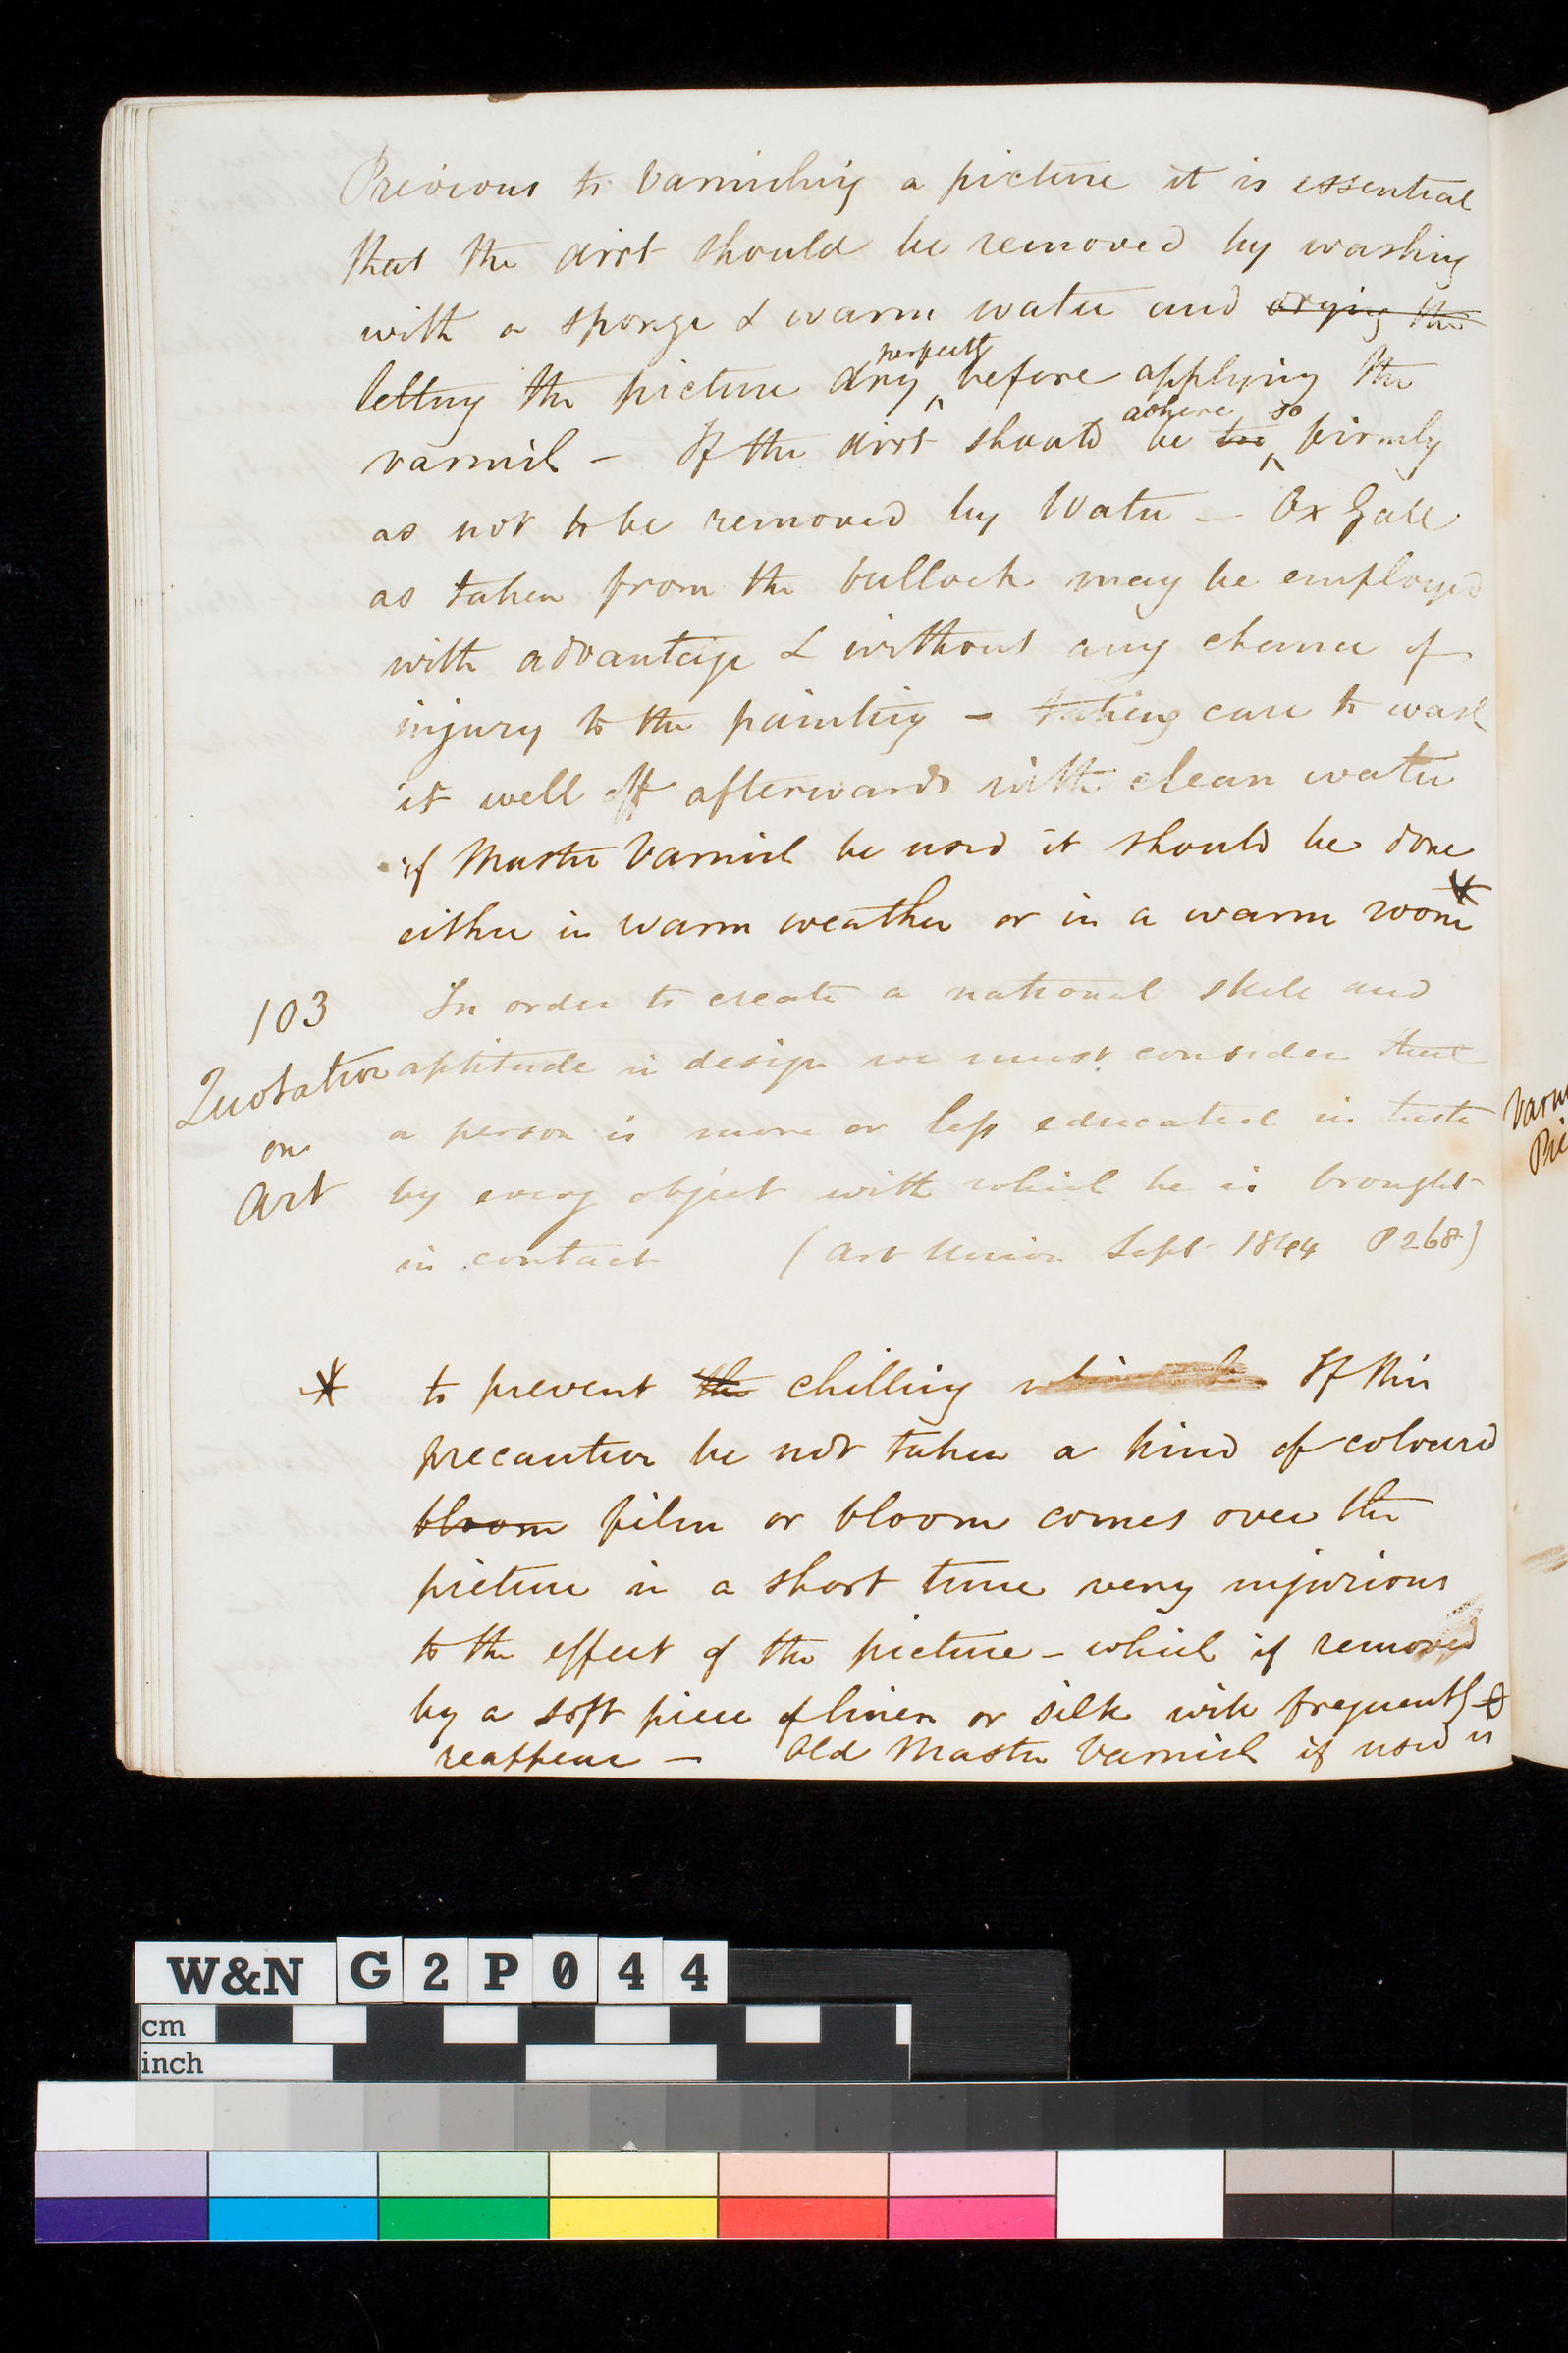 Previous to Varnishing a picture it is essential
that the dirt should be removed by washing
with a sponge & warm water and drying the
letting the picture dry perfectly before applying the
varnish – If the dirt should adhere be too so firmly
as not to be removed by Water – Ox Gall
as taken from the bullock may be employed
with advantage & without any chance of
injury to the painting – taking care to wash
it well off afterwards with clean water
if Mastic Varnish be used it should be done
either in warm weather or in a warm room *
103
Quotation
on
Art
In order to create a national skill and
aptitude in design we must consider that
a person is more or less educated in taste
by every object with which he is brought
in contact (Art Union Sept 1844 P 268)
* to prevent the chilling If this
precaution be not taken a kind of coloured
bloom film or bloom comes over the
picture in a short time very injurious
to the effect of the picture – which if removed
by a soft piece of linen or silk will frequently
reappear – Old Mastic Varnish if used is
Varn
Pic
W&N G2P044
cm
inch